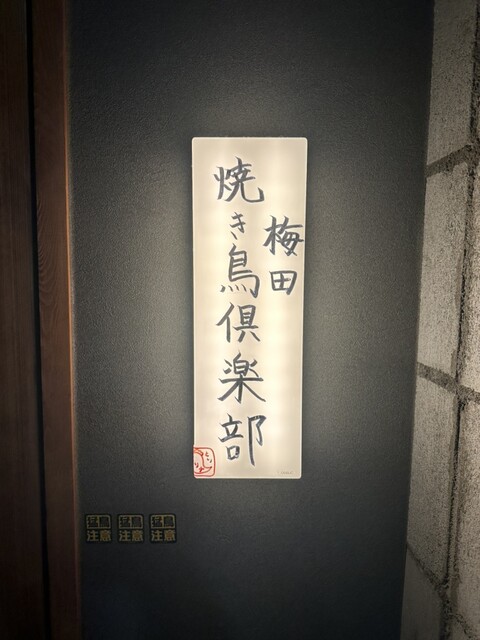 梅田
焼き鳥倶楽部
猛鳥注意
猛鳥注意
猛鳥注意